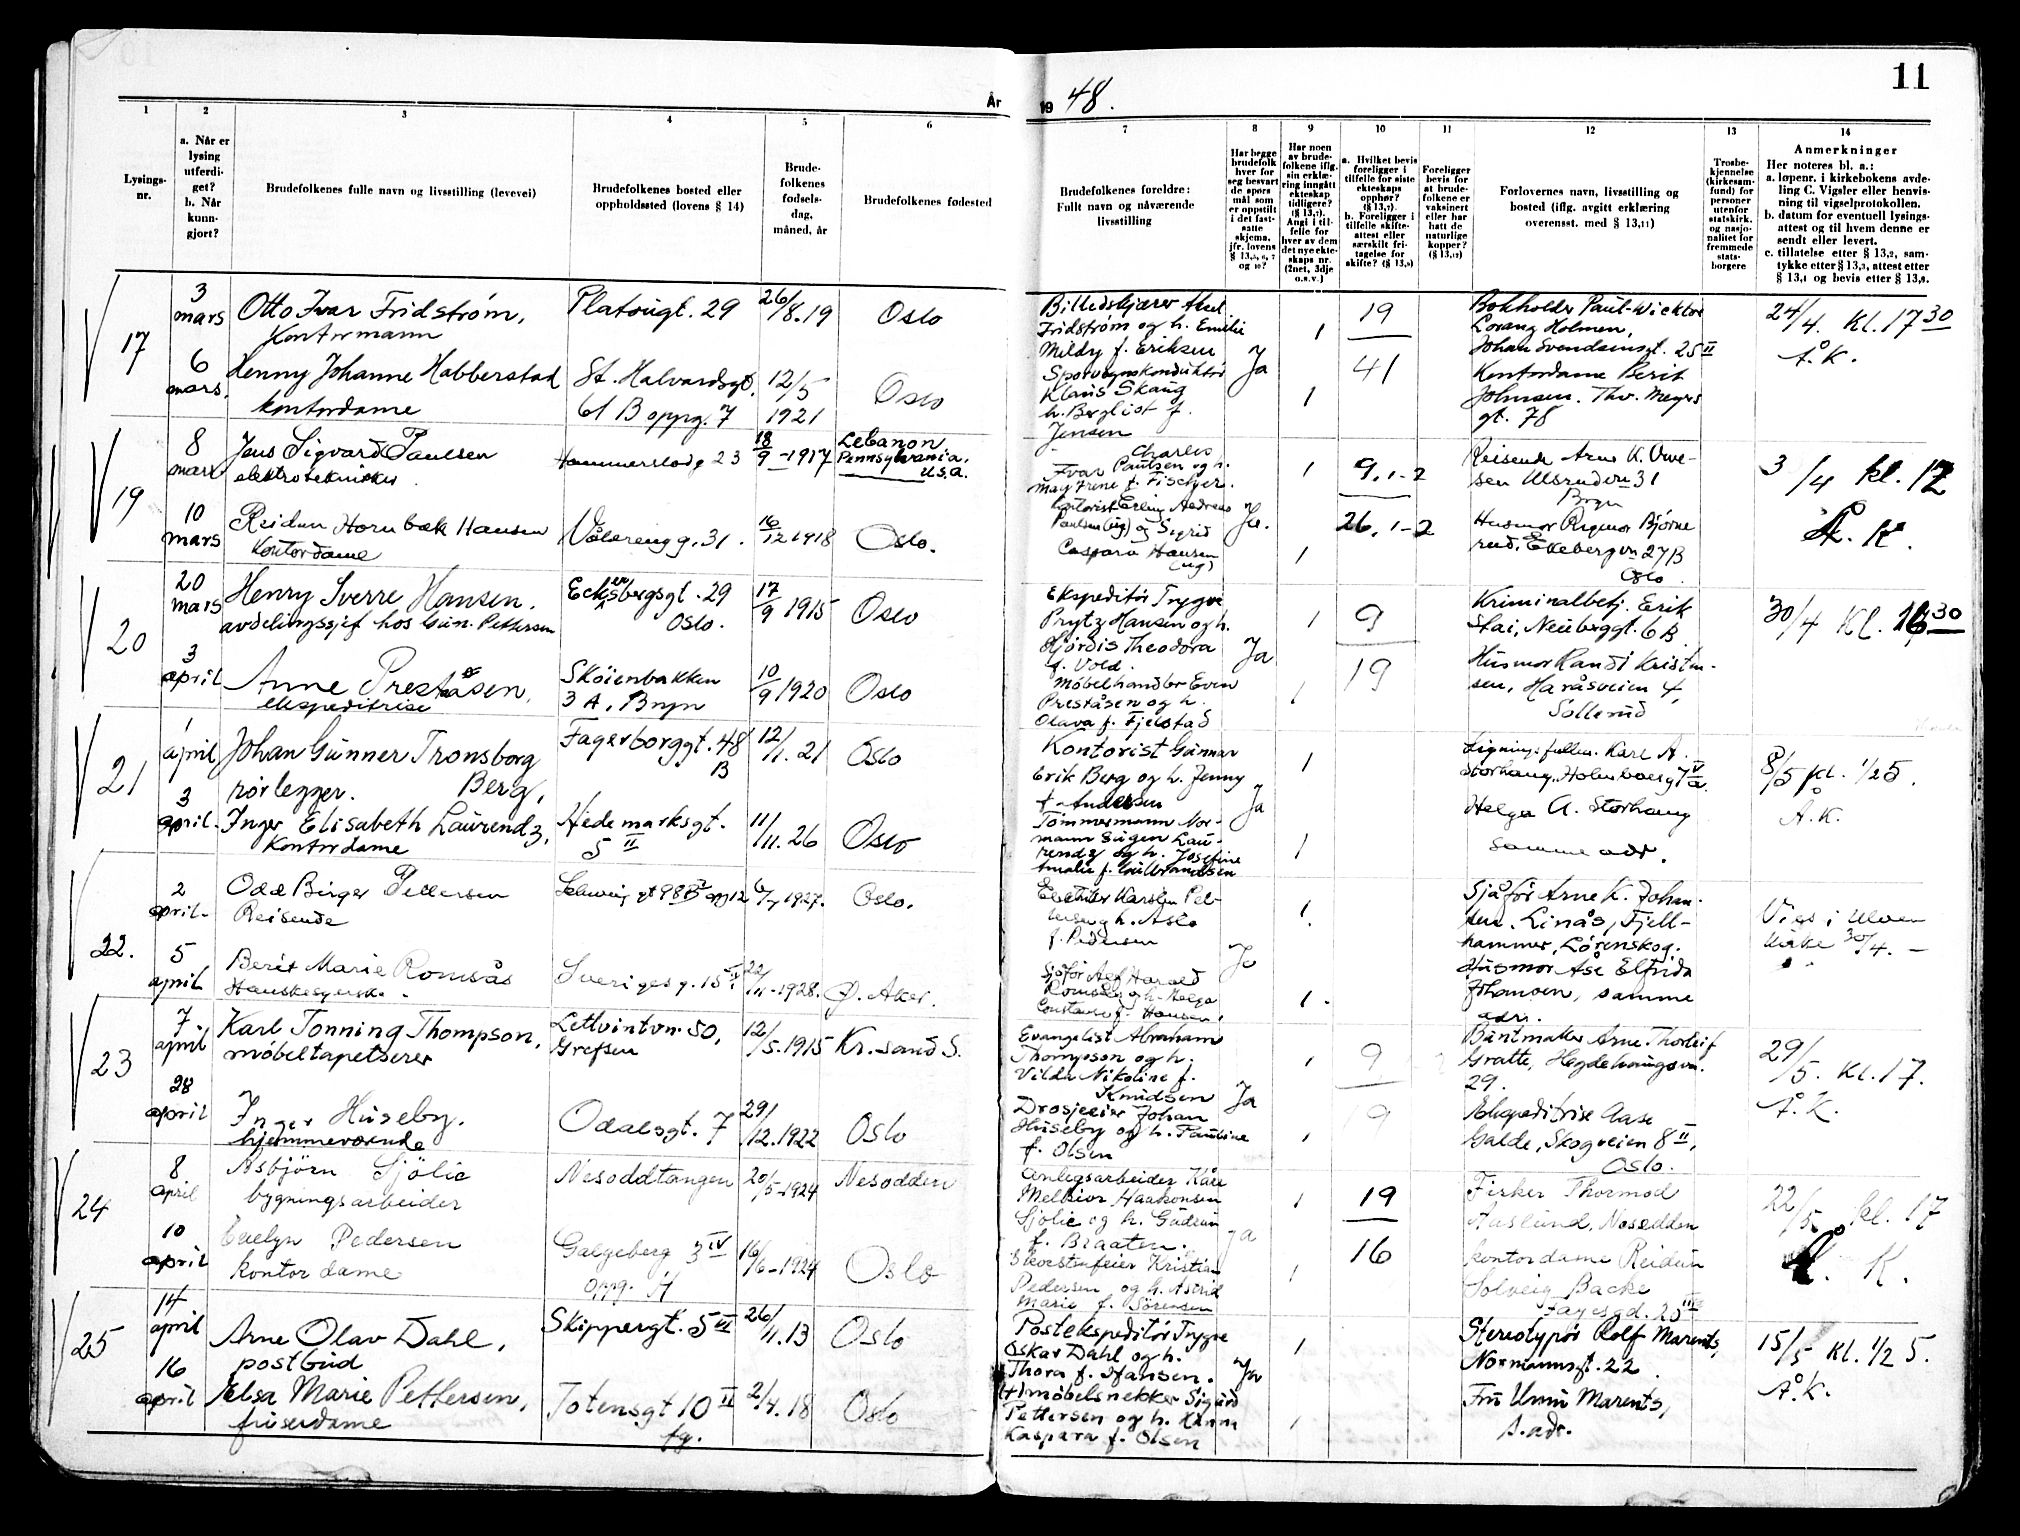 11
År 1948.
1
2
3
4
5
6
7
8
9
10
11
12
13
14
Lysings-
nr.
a. Når er
lysing
utferdi-
get?
b. Når
kunn-
gjort?
Brudefolkenes fulle navn og livsstilling (levevei)
Brudefolkenes bosted eller
oppholdssted (lovens § 14)
Brude-
folkenes
fødsels-
dag,
måned, år
Brudefolkenes fødested
Brudefolkenes foreldre:
Fullt navn og nåværende
livsstilling
Har begge
brudefolk
hver for
seg besvart
de spørs
mål som
er oppstilt
i det fast-
satte
skjema,
jfr. lovens
§ 13,5, 6, 7
og 10?
Har noen
av brude-
folkene iflg.
sin erklæ-
ring inngått
ekteskap
tidligere?
(§ 13,7).
Angi i til-
felle for
hver av dem
det nye ekte-
skaps nr.
(2net, 3dje
o.s.v.)
a. Hvilket bevis
foreligger i
tilfelle for siste
ekteskaps
opphør?
(§ 13,7).
b. Foreligger i
tilfelle skifte-
attest eller
særskilt fri-
tagelse for
skifte? (§ 13,8)
Foreligger
bevis for
at brude-
folkene er
vaksinert
eller har
hatt de
naturlige
kopper?
(§ 13,12)
Forlovernes navn, livsstilling og
bosted (iflg. avgitt erklæring
overensst. med § 13,11)
Trosbe-
kjennelse
(kirkesam-
fund) for
personer
utenfor
statskirk.
og nasjo-
nalitet for
fremmede
stats-
borgere
Anmerkninger
Her noteres bl. a.:
a. løpenr. i kirkebokens avde-
ling C. Vigsler eller henvis-
ning til vigselprotokollen.
b. datum for eventuell lysings-
attest og til hvem denne er
sendt eller levert.
c. tillatelse etter § 13,2, sam-
tykke etter § 13,3, attest etter
§ 13,4 og bevis etter § 13,8.
17
3
mars
Otto Ivar Fridstrøm,
Kontormann
Platougt. 29
26/8.19
Oslo
Billedskjærer Aksel
Fridstrøm og h. Emilie
Mildy f. Eriksen
1
19
Bokholder Paul Wicktor
Lorang Holmen,
Johan Svendsensgt. 25 II
24/4. Kl. 17 30
Å. K.
6
mars.
Henny Johanne Habberstad
kontordame
St. Halvardsgt.
61 B oppg. 7
12/5
1921
Oslo
Sporvognskonduktør
Klaus Skaug
h. Bergliot f.
Jensen
Ja
1
41
Kontordame Berit
Johnsen. Thv. Meyers
gt. 78
19
8
mars
Jens Sigvard Paulsen
elektrotekniker
Hammerstadg 23
18/9 - 1917
Lebanon
Pennsylvania.
U.S.A.
Charles
Ivar Paulsen og h.
May Irene f. Fischer.
1
9.1-2
Reisende Arne K. Ove-
sen Ulsrudvn 31
Bryn
3/4 kl. 17
Å. K.
10
mars
Reidun Hornbæk Hansen
Kontordame
Vålerengg. 31.
16/12 1918
Oslo.
Kontorist Erling Andreas
Paulsen (ug) og Sigrid
Caspara Hansen
(ug)
Ja.
1
26.1-2
Husmor Ragnor Bjørne
rud, Ekebergvn 27B
Oslo
20
20
mars
Henry Sverre Hansen.
avdelingssjef hos Gun. Pettersen
Eckersbergsgt. 29
Oslo.
17/9 1915
Oslo
Ekspeditør Trygve
Prytz Hansen og h.
Hjørdis Theodora
f. Vold.
1
9
Kriminalbetj. Erik
Stai, Neuberggt. 6B
30/4 Kl. 16 30
3
april
Anne Preståsen,
ekspeditrise
Skøienbakken
3 A, Bryn
10/9 1920
Oslo
Møbelhandler Even
Preståsen og h.
Olava f. Fjelstad
Ja
1
19
Husmor Randi Kristen-
sen, Haråsveien 4,
Sollerud
21
1
april
Johan Gunner Tronsborg
Berg,
rørlegger.
Fagerborggt. 48
B
12/1. 21
Oslo
Kontorist Gunnar
Erik Berg og h. Jenny
f. Andersen
1
Ligning.fullm. Karl A.
Storhaug, Holmboesgt 7 V a.
8/5 kl. 1/2 5.
Å. K.
3
april.
Inger Elisabeth Laurendz,
Kontordame
Hedemarksgt.
5 II
11/11. 26
Oslo
Tømmermann Nor-
mann Eugen Lau-
rendz og h. Josefine
Amalie f. Guilbrandsen
Ja
1
Helga A. Storhaug
Samme adr.
22.
2
april.
Odd Birger Pettersen
Reisende
Schweig gt 98 B opg 12
1927.
Oslo.
Karsten Pet-
tersen og h. Asla
f. Pedersen
1
Sjåfør Arne K. Johan-
sen. Linås, Fjell-
hammer, Lørenskog.
Vies i Ulven
kirke 30/4. -
5
april
Berit Marie Romsås
Hanskesyerske.
Sverigesg. 15 V
22/11 - 1928.
Ø. Aker.
Sjåfør Alf Harald
Romsås og h. Helga
Constanse f. Hansen.
Ja
1.
Husmor Åse Elfrida
Johansen, samme
adr.
23
7.
april
Karl Tonning Thompson,
møbeltapetserer
Lettvintvn. 50,
Grefsen
12/5.1915
Kr.sand S.
Evangelist Abraham
Thompson og h.
Vilda Nikoline f.
Knudsen
1
9
Buntmaker Arne Thorleif
Gratte, Hegdehaugsvn.
29.
29/5. Kl. 17.
Å. K.
28
april
Inger Huseby.
hjemmeværende
Odalsgt. 7
29/12.1922
Oslo
Drosjeeier Johan
Huseby og h. Pauline
f. Olsen
Ja
1
19
Ekspeditrise Aase
Galde, Skogveien 8 II,
Oslo.
24
8
april
Asbjørn Sjölie
bygningsarbeider
Nesoddtangen
20/5-1924
Nesodden
Anlegsarbeider Kåre
Melkior Haakonsen
Sjölie og h. Gudrun
f. Braaten.
1
19
Fisker Thormod
Aaslund, Nesodden
22/5 kl. 17
Å. K.
10
april
Evelyn Pedersen
kontordame
Galgeberg 3 IV
opg. H
16/6-1924
Oslo
Skorstenfeier Kristian
Pedersen og h. Astrid
Marie f. Sörensen
ja
1
16
kontordame Reidun
Solveig Backe
Fayesgd. 20 III
25
14
april
Arne Olav Dahl,
postbud
Skippergt. 5 III
26/11.13
Oslo
Postekspeditør Trygve
Oskar Dahl og h.
Thora f. Hansen.
1
Stereotypør Rolf Marents,
Normannsgt. 22
15/5 kl. 1/2 5.
Å.K.
16
april
Elsa Marie Pettersen,
friserdame
Totensgt 10 II
fg.
2/4.18
Oslo
(+) møbelsnekker Sigurd
Pettersen og h. Hanna
Kaspara f. Olsen
Ja
1
Fru Unni Marents,
s. adr.